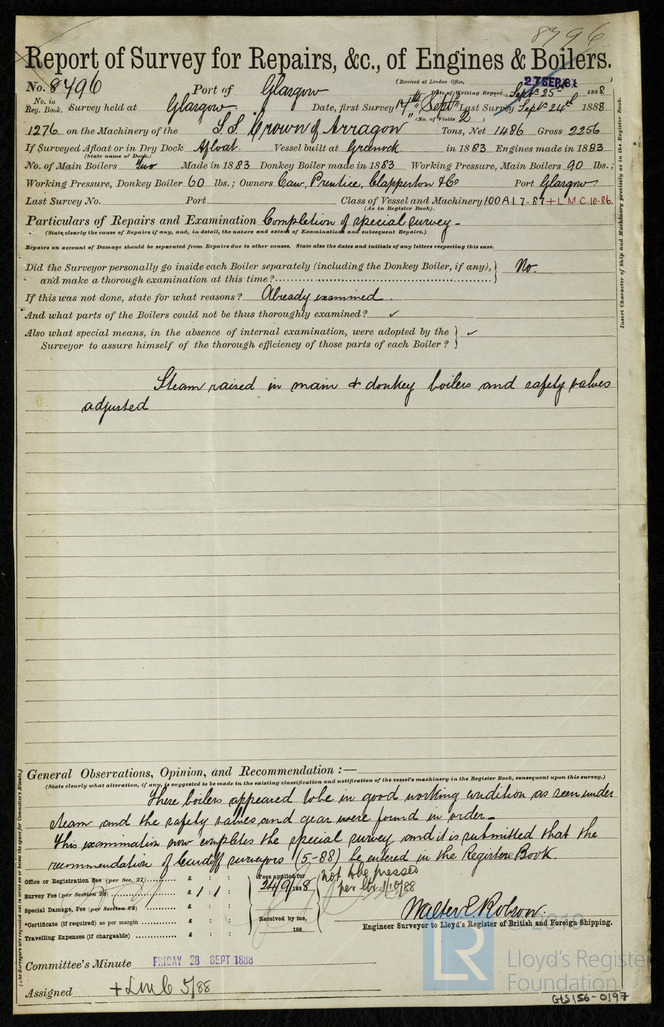 8496
Report of Survey for Repairs, &c., of Engines & Boilers.
(Received at London Office, 27 SEP 88
No. 8496 Port of Glasgow Date of Writing Report Sept. 25th 1888
No. in Reg. Book. Survey held at Glasgow Date, first Survey 17th Septr Last Survey Septr 24th 1888
(No. of Visits 2)
1276 on the Machinery of the S.S. Crown of Arragon Tons, Net 1486 Gross 2256
If Surveyed Afloat or in Dry Dock Afloat Vessel built at Greenock in 1883 Engines made in 1883
(State name of Dock.)
No. of Main Boilers Two Made in 1883 Donkey Boiler made in 1883 Working Pressure, Main Boilers 90 lbs.;
Working Pressure, Donkey Boiler 60 lbs.; Owners Caw, Prentice, Clapperton & Co Port Glasgow
Last Survey No. Port Class of Vessel and Machinery 100A1 7-87 + L.M.C. 10-86
(As in Register Book).
Particulars of Repairs and Examination Completion of special survey -
(State clearly the cause of Repairs if any, and, in detail, the nature and extent of Examinations and subsequent Repairs.)
Repairs on account of Damage should be separated from Repairs due to other causes. State also the dates and initials of any letters respecting this case.
Did the Surveyor personally go inside each Boiler separately (including the Donkey Boiler, if any), No.
and make a thorough examination at this time?
If this was not done, state for what reasons? Already examined.
And what parts of the Boilers could not be thus thoroughly examined? ✓
Also what special means, in the absence of internal examination, were adopted by the ✓
Surveyor to assure himself of the thorough efficiency of those parts of each Boiler?
Insert Character of Ship and Machinery precisely as in the Register Book.
Steam raised in main & donkey boilers and safety valves
adjusted
General Observations, Opinion, and Recommendation :—
(State clearly what alteration, if any, is suggested to be made in the existing classification and notification of the vessel's machinery in the Register Book, consequent upon this survey.)
These boilers appeared to be in good working condition as seen under
steam and the safety valves, and gear were found in order -
This examination now completes the special survey and it is submitted that the
recommendation of Cardiff surveyors (5-88) be entered in the Register Book.
Office or Registration Fee (per Sec. 27) £ : : Fees applied for
not be pressed
Survey Fee (per Section 28) £ 1 : 1 : 24/9/1888
Special Damage, Fee (per Section 28) £ : :
*Certificate (if required) as per margin £ : : Received by me,
Travelling Expenses (if chargeable) £ : : 188
Walter E. Robson
Engineer Surveyor to Lloyd's Register of British and Foreign Shipping.
Committee's Minute FRIDAY 28 SEPT 1888
Assigned + LMC 5/88
LR
Lloyd's Register
Foundation
GLS156-0197